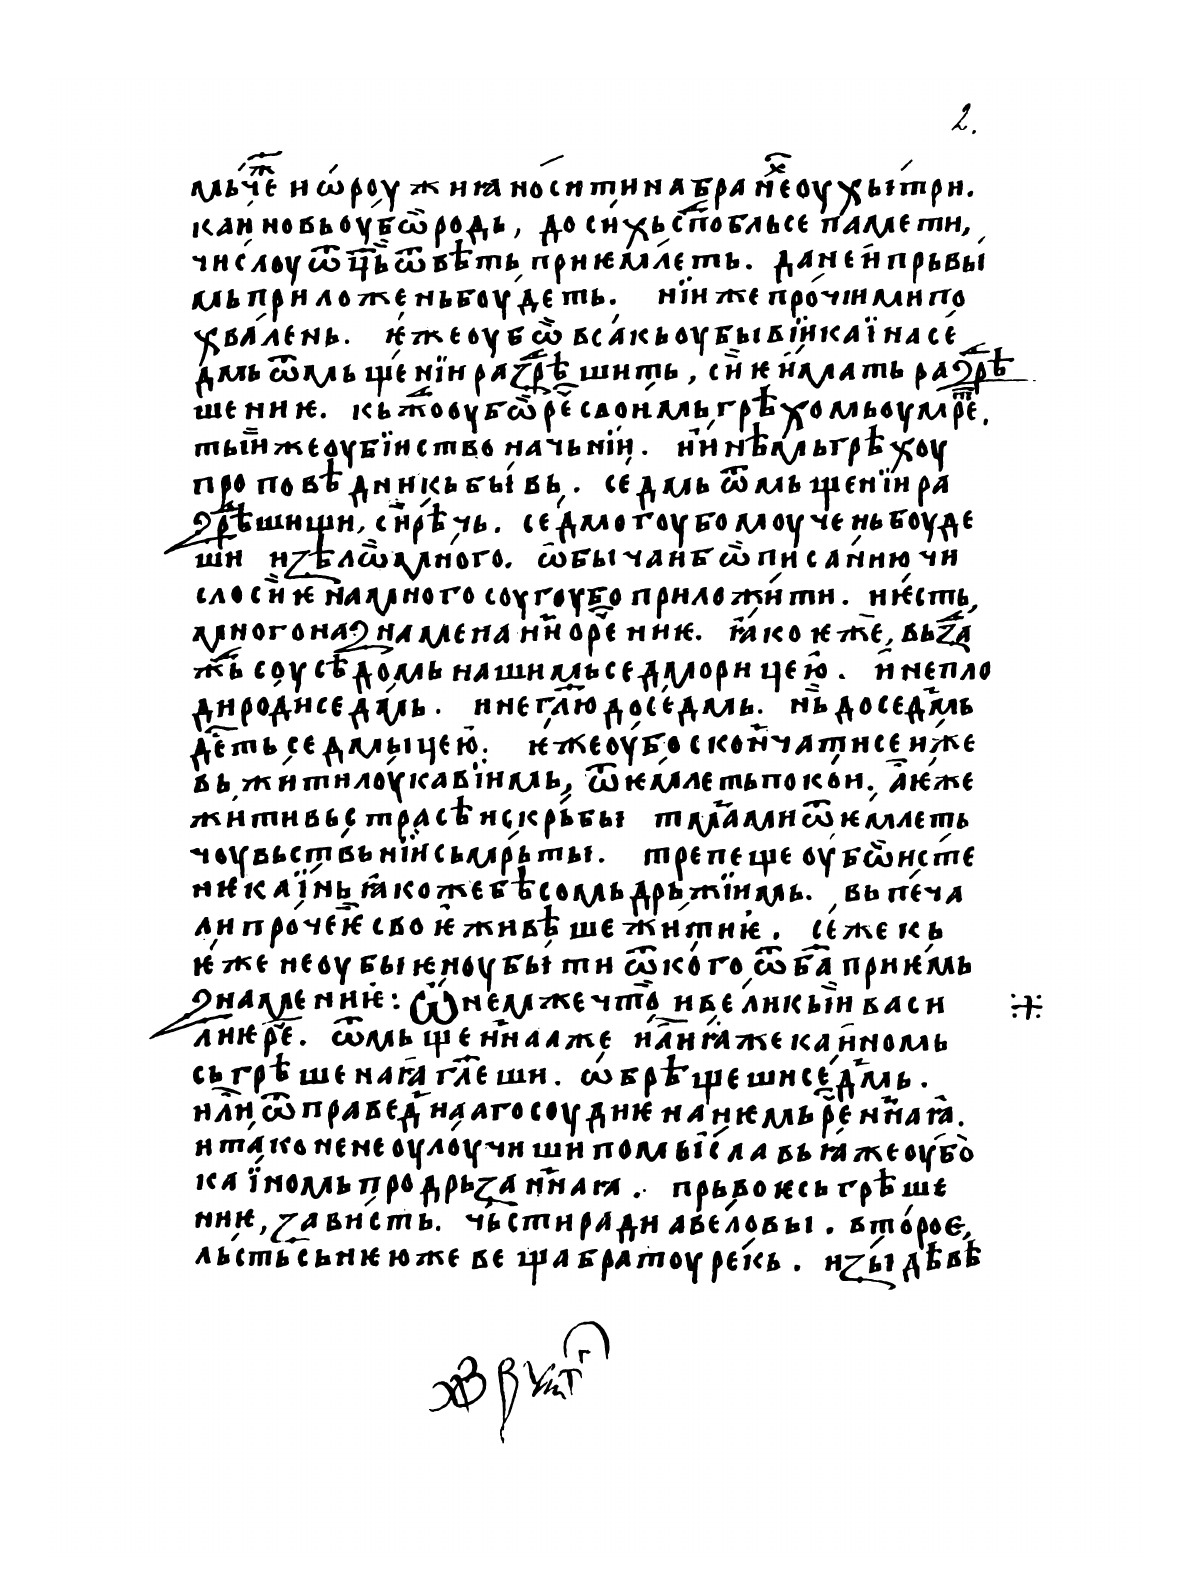 2.
мьч́еⷤ и ѡ҆роужиꙗ носити на бранеⷯ оу хытри.
каи новь оубѡ̀ родь, до сихь споⷣбльсе памети,
число ѿ цⷭ҇ь ѿвѣть приѥмлѥть. да не и прьвы
мь приложень боудеть. нїиже прочіими по
хвалень. ѥже оубѡ̀ всакь оубывїи каїна се
дмь ѿмьщенїи разⷣрѣшить, сиѥ имать разⷣрѣ
шениѥ. кьжⷣо оубѡ̀ реⷱ҇ своимь грѣхомь оумреⷮ.
тыиже оубїиство начьніи. ниⷩ҇нѣмь грѣхоу
проповѣдникь бывь. седмь ѿмьщенїи ра
зⷣрѣшиши, сиⷩ҇рѣчь. седмогоубо моучень боуде
ши изѣлѡ̀ много. ѡ҆бычаи бѡ̀ писанию чи
сло сиѥ на много соугоубо приложити. иѥсть,
много на знаменаниⷩ҇ ореⷱ҇ниѥ. ꙗко ѥже, вьзⷣа
жⷣь соусѣдомь нашимь седморицею. и непло
ди роди седмь. и не глⷮю до седмь. нь до седⷨмь
деⷭ҇ть седмыцею. ѥже оубо скончатисе иже
вь житилоукавїимь, ѿѥмлѥть покои. аⷳѥже
житивь страсѣ и скрьбы тмⷨами ѿѥмлеть
чоувьствьнїи сьмрьты. трепеще оубѡ̀ истe
ниѥ каїнь ꙗкоже бѣсомь дрьжїимь. вь печа
ли прочеѥ своѥ живѣше житиѥ. се́же кь
ѥже не оубыѥноу быти ѿ кого, ѿ баⷢ҇ приѥмь
знамениѥ: Ѡ немже чтⷪ҇о и великыи васи
лиѥ реⷱ҇. ѿмьщеннаⷩ҇ аже илиⷩ҇ꙗже каинномь
сьгрѣшенаꙗ глⷮеши. ѡ҆брѣщеши седⷨмь.
илиⷩ҇ ѿ праведⷩ҇нааго соудиѥ на нѥмь реⷱ҇ннаꙗ.
и тако не неоулоучиши помысла вь ꙗже оубо
каїномь продрьзанⷩ҇наꙗ. прьвоѥ сьгрѣше
ниѥ, зависть. чьсти ради авеловы. второѥ,
льсть сь нѥюже веща братоу рекь. изыдѣвѣ